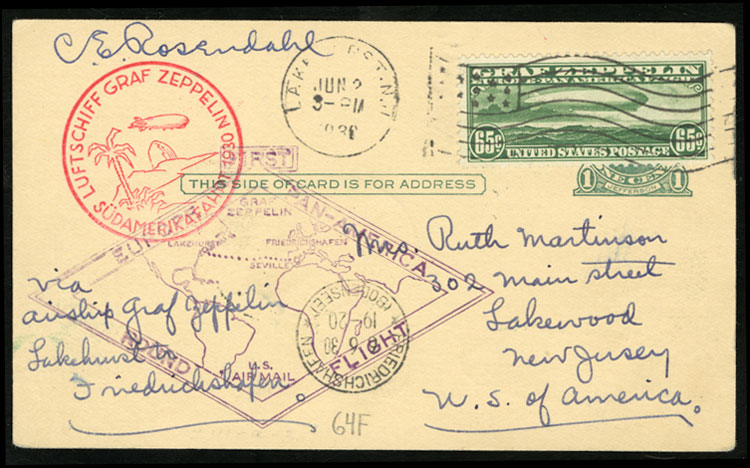 C. E. Rosendahl
LUFTSCHIFF GRAF ZEPPELIN
SÜDAMERIKAFAHRT 1930
LAKEHURST, N.J.
JUN 2
3-PM
1930
GRAF ZEPPELIN
65¢ 65¢
UNITED STATES POSTAGE
THIS SIDE OF CARD IS FOR ADDRESS
1 JEFFERSON 1
FIRST
EUROPE PAN-AMERICA
ROUND FLIGHT
GRAF
ZEPPELIN
LAKEHURST FRIEDRICHSHAFEN
SEVILLE
U.S.
AIR MAIL
FRIEDRICHSHAFEN
(BODENSEE)
6.30
19-20
via
airship Graf Zeppelin
Lakehurst to
Friedrichshafen.
Mrs. Ruth Martinson
302 Main street
Lakewood
New Jersey
U. S. of America.
64F